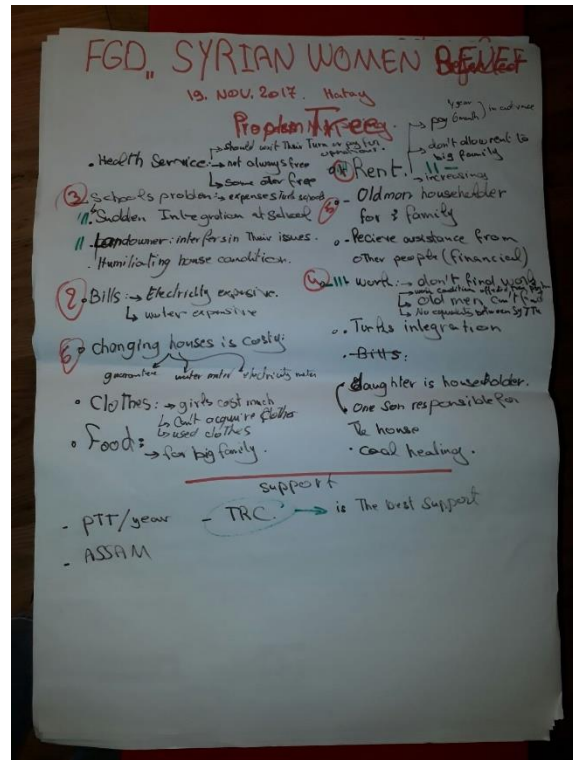 FGD,, SYRIAN WOMEN
19. NOV. 2017. Hatay
Problem Tree
• Health Service: → not always free
↳ some other free
should wait Their Turn or pay for operations.
③ Schools problem → expenses
Sudden Integration at School
Landowner: interfers in Their issues.
• Humiliating house condition.
② Bills: → Electricity expensive.
↳ water expensive
⑥ changing houses is costly:
guarantee water meter electricity meter
• Clothes: → girls cost much
↳ can't acquire clothes
↳ used clothes
• Food:
→ for big family.
① Rent:
pay 6 month / year in advance
don't allow rent to big family
increasing
⑤ Old man householder
for 3 family
• Recieve assistance from
other people (financial)
④ work: → don't find work
↳ old men can't find
↳ No equality between
• Turks integration
• Bills:
daughter is householder.
One son responsible for
The house
• coal heating.
support
- PTT/year - TRC → is The best Support
- ASSAM